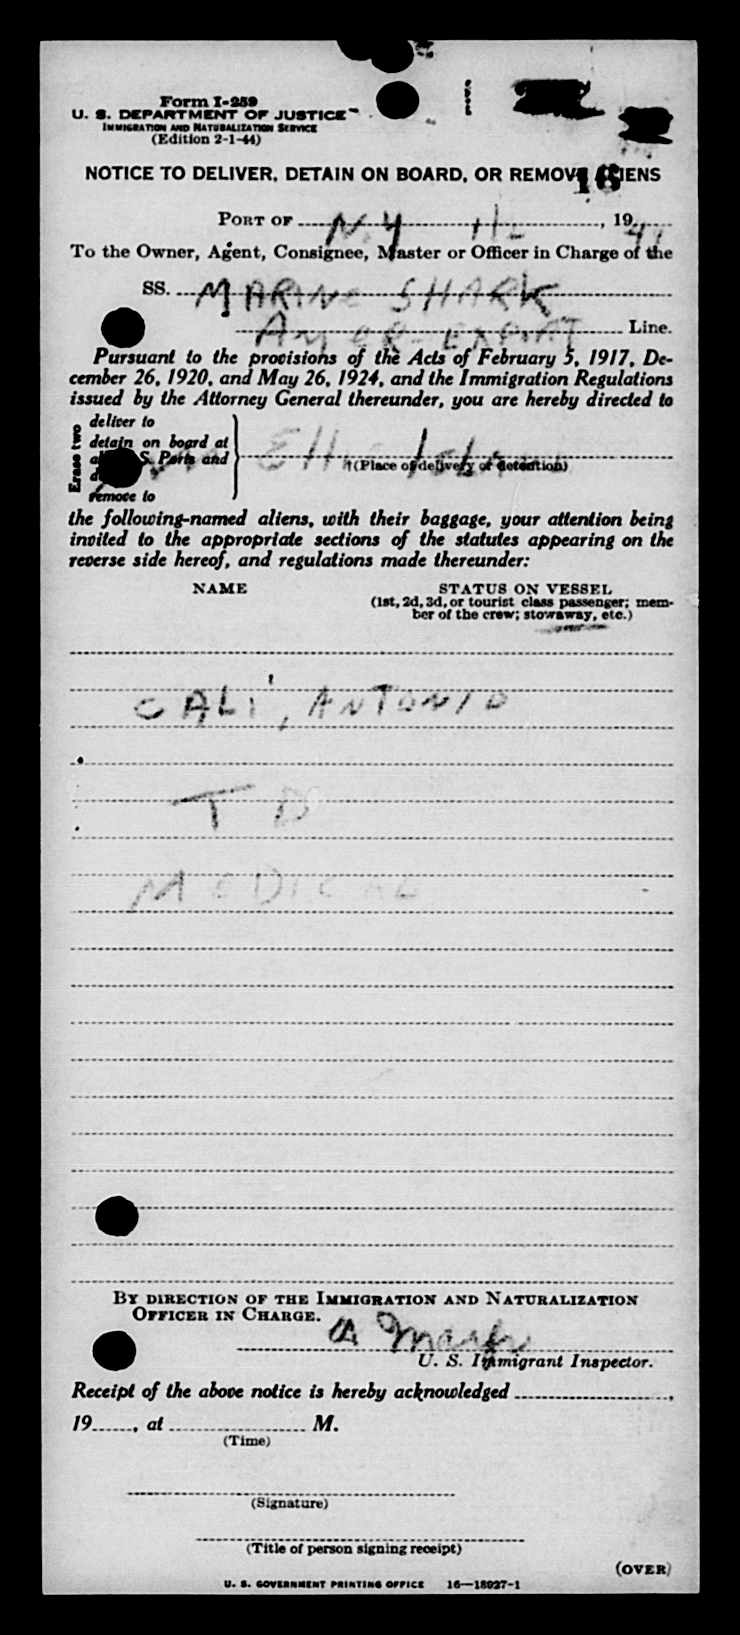 Form I-259
U. S. DEPARTMENT OF JUSTICE
IMMIGRATION AND NATURALIZATION SERVICE
(Edition 2-1-44)
NOTICE TO DELIVER, DETAIN ON BOARD, OR REMOVE ALIENS
16
PORT OF N.Y 19
To the Owner, Agent, Consignee, Master or Officer in Charge of the
SS. MARINE SHARK
AMER-EXPORT Line.
Pursuant to the provisions of the Acts of February 5, 1917, De-
cember 26, 1920, and May 26, 1924, and the Immigration Regulations
issued by the Attorney General thereunder, you are hereby directed to
Erase two
deliver to
detain on board at
S. Ports and
remove to
Ellis Island
(Place of delivery or detention)
the following-named aliens, with their baggage, your attention being
invited to the appropriate sections of the statutes appearing on the
reverse side hereof, and regulations made thereunder:
NAME STATUS ON VESSEL
(1st, 2d, 3d, or tourist class passenger; mem-
ber of the crew; stowaway, etc.)
CALI, ANTONIO
T D
MEDICAL
BY DIRECTION OF THE IMMIGRATION AND NATURALIZATION
OFFICER IN CHARGE.
U. S. Immigrant Inspector.
Receipt of the above notice is hereby acknowledged ,
19 , at M.
(Time)
(Signature)
(Title of person signing receipt)
(OVER)
U. S. GOVERNMENT PRINTING OFFICE 16—18027-1